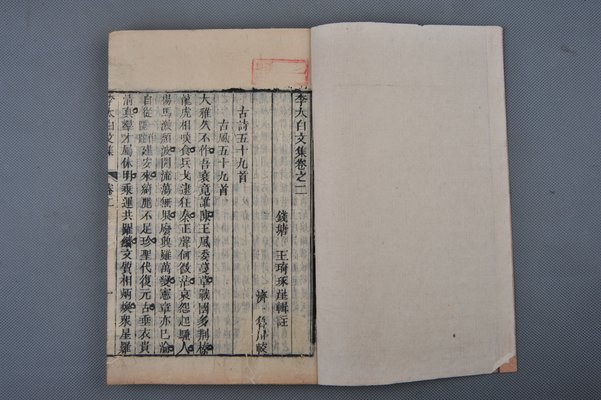 李太白文集卷之二
錢塘 王琦琢崖輯註
濟 魯川較
古詩五十九首
古風五十九首
大雅久不作吾衰竟誰陳王風委蔓草戰國多荆榛
龍虎相啖食兵戈逮狂秦正聲何微茫哀怨起騷人
揚馬激頹波開流蕩無垠廢興雖萬變憲章亦已淪
自從建安來綺麗不足珍聖代復元古垂衣貴
清真羣才屬休明乘運共躍鱗文質相炳煥衆星羅
李太白文集 卷二 一